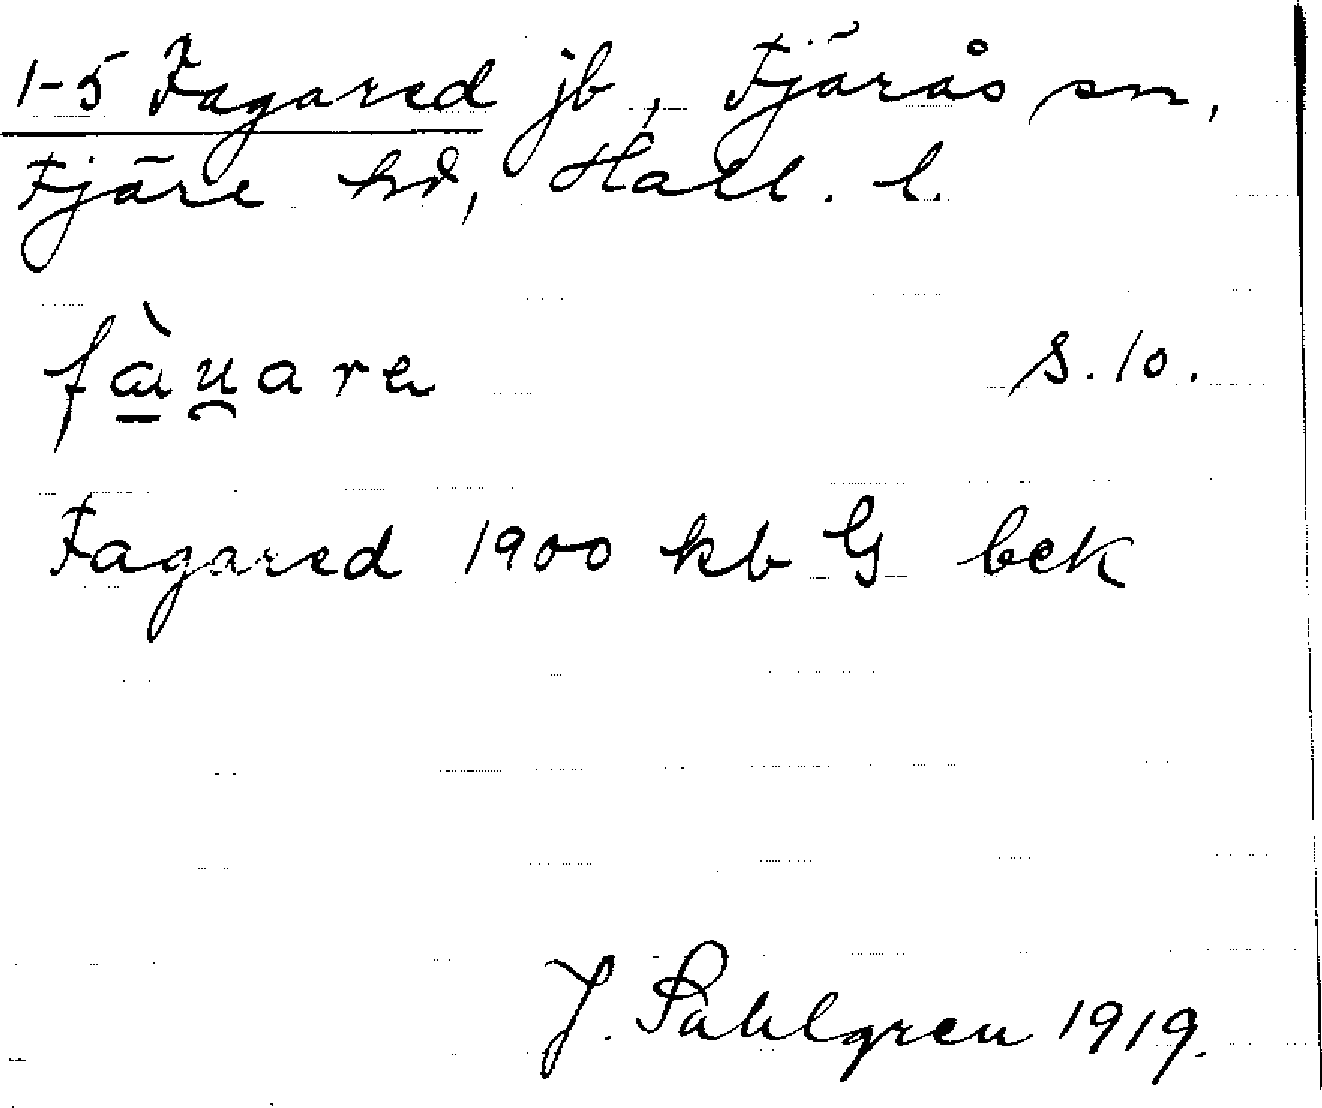 1-5 Fagared jb, Fjärås sn,
Fjäre hd, Hall. l.
fàu̯are S. 10.
Fagared 1900 kb G bek
J. Sahlgren 1919.